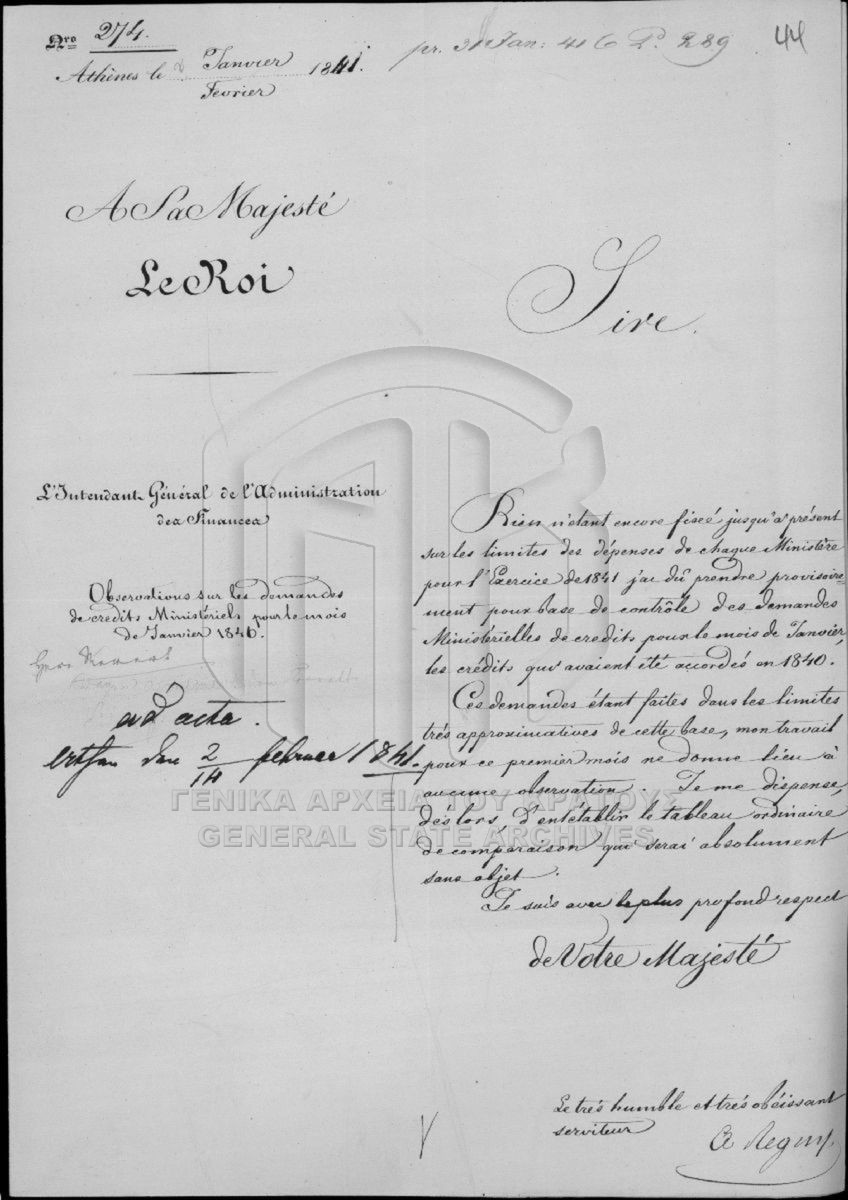 Nro 274.
Athènes le Janvier 1841.
Fevrier
pr. Jan: 41 289
44
A Sa Majesté
Le Roi
Sire.
L'Intendant Général de l'Administration
des Finances
Observations sur les demandes
de crédits Ministériels pour le mois
de Janvier 1840.
Herr
ad acta.
den 2/14 februar 1841.
Rien n'étant encore fixé jusqu'à présent
sur les limites des dépenses de chaque Ministère
pour l'Exercice de 1841 j'ai dû prendre provisoire-
ment pour base de contrôle des demandes
Ministérielles de credits pour le mois de Janvier,
les crédits qui avaient été accordés en 1840.
Ces demandes étant faites dans les limites
très approximatives de cette base, mon travail
pour ce premier mois ne donne lieu à
aucune observation. Je me dispense,
dès lors, d'en établir le tableau ordinaire
de comparaison qui serai absolument
sans objet.
Je suis avec le plus profond respect
de Votre Majesté
Le très humble et très obéissant
serviteur
Regny
ΓΕΝΙΚΑ ΑΡΧΕΙΑ ΤΟΥ ΚΡΑΤΟΥΣ
GENERAL STATE ARCHIVES